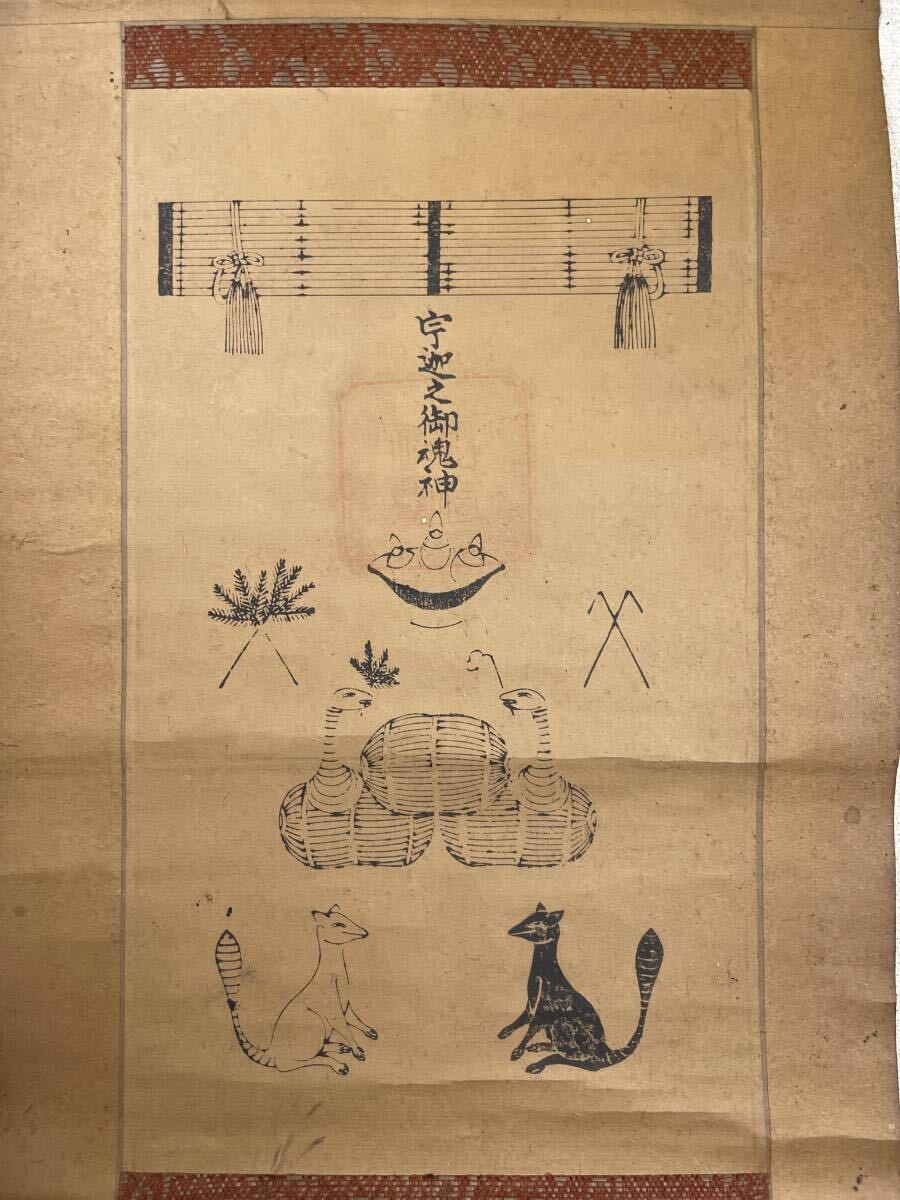 宇迦之御魂神